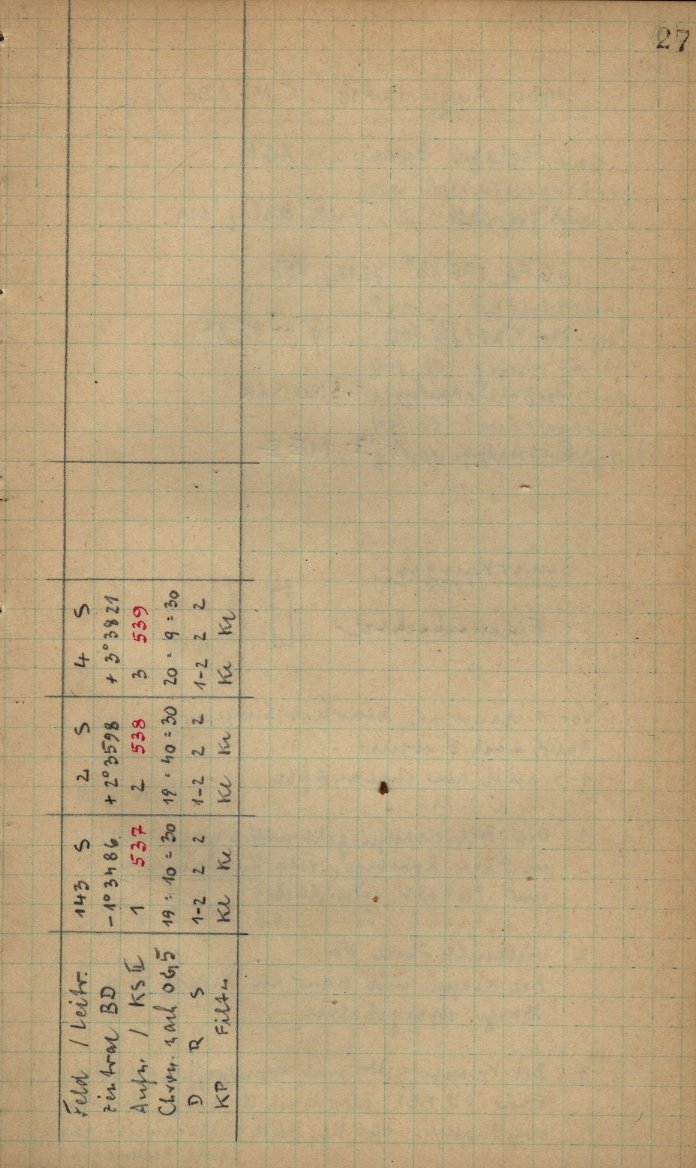 27
Feld / Leitr. 143 S 2 S 4 S
Zentral BD -1°3486 +2°3598 +3°3821
Aufn. / KS II 1 537 2 538 3 539
Chron. nach 06,5 19 : 10 = 30 19 : 40 = 30 20 : 9 = 30
D R S 1-2 2 2 1-2 2 2 1-2 2 2
KP Filter Kl Kl Kl Kl Kl Kl